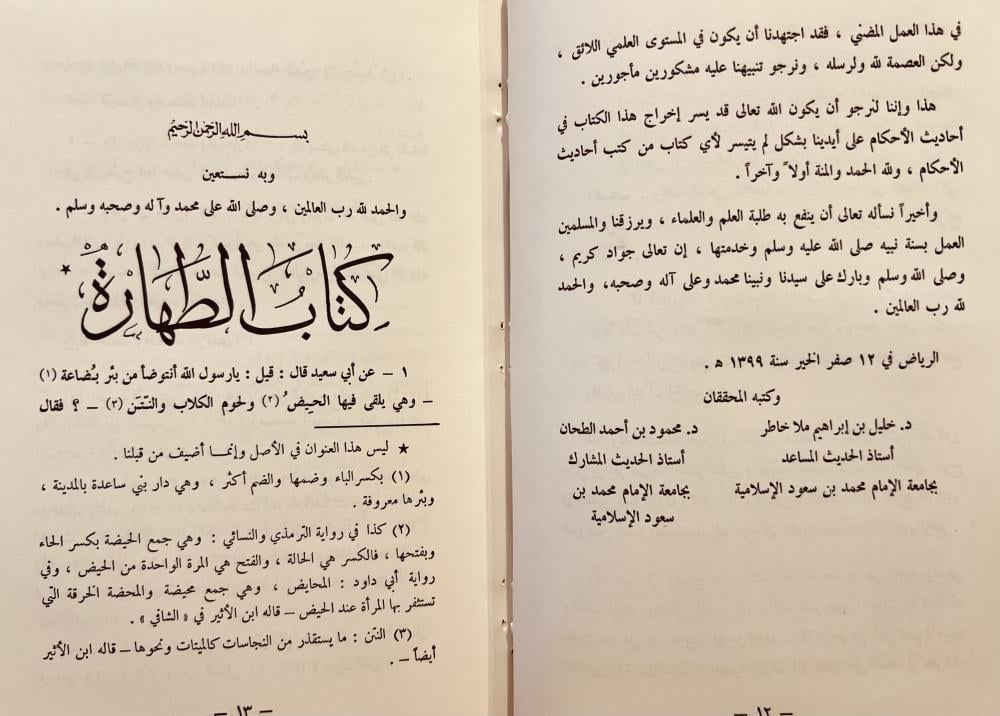 في هذا العمل المضني ، فقد اجتهدنا أن يكون في المستوى العلمي اللائق ،
ولكن العصمة لله ولرسله ، ونرجو تنبيهنا عليه مشكورين مأجورين .
هذا وإننا لنرجو أن يكون الله تعالى قد يسر إخراج هذا الكتاب في
أحاديث الأحكام على أيدينا بشكل لم يتيسر لأي كتاب من كتب أحاديث
الأحكام ، ولله الحمد والمنة أولاً وآخراً .
وأخيراً نسأله تعالى أن ينفع به طلبة العلم والعلماء ، ويرزقنا والمسلمين
العمل بسنة نبيه صلى الله عليه وسلم وخدمتها ، إن تعالى جواد كريم ،
وصلى الله وسلم وبارك على سيدنا ونبينا محمد وعلى آله وصحبه، والحمد
لله رب العالمين .
الرياض في ١٢ صفر الخير سنة ١٣٩٩ ه .
وكتبه المحققان
د. خليل بن إبراهيم ملا خاطر
أستاذ الحديث المساعد
بجامعة الإمام محمد بن سعود الإسلامية
د. محمود بن أحمد الطحان
أستاذ الحديث المشارك
بجامعة الإمام محمد بن
سعود الإسلامية
— ١٢ —
بسم الله الرحمن الرحيم
وبه نستعين
والحمد لله رب العالمين ، وصلى الله على محمد وآله وصحبه وسلم .
كتاب الطهارة ★
١ – عن أبي سعيد قال : قيل : يارسول الله أنتوضأ من بئر بُضاعة (١)
– وهي يلقى فيها الحِيضُ (٢) ولحوم الكلاب والنَّتَن (٣) – ؟ فقال
★ ليس هذا العنوان في الأصل وإنما أضيف من قبلنا .
(١) بكسر الباء وضمها والضم أكثر ، وهي دار بني ساعدة بالمدينة ،
وبئرها معروفة .
(٢) كذا في رواية الترمذي والنسائي : وهي جمع الحيضة بكسر الحاء
وبفتحها ، فالكسر هي الحالة ، والفتح هي المرة الواحدة من الحيض ، وفي
رواية أبي داود : المحايض ، وهي جمع محيضة والمحضة الخرقة التي
تستثفر بها المرأة عند الحيض – قاله ابن الأثير في « الشافي » .
(٣) النتن : ما يستقذر من النجاسات كالميتات ونحوها – قاله ابن الأثير
أيضاً – .
— ١٣ —